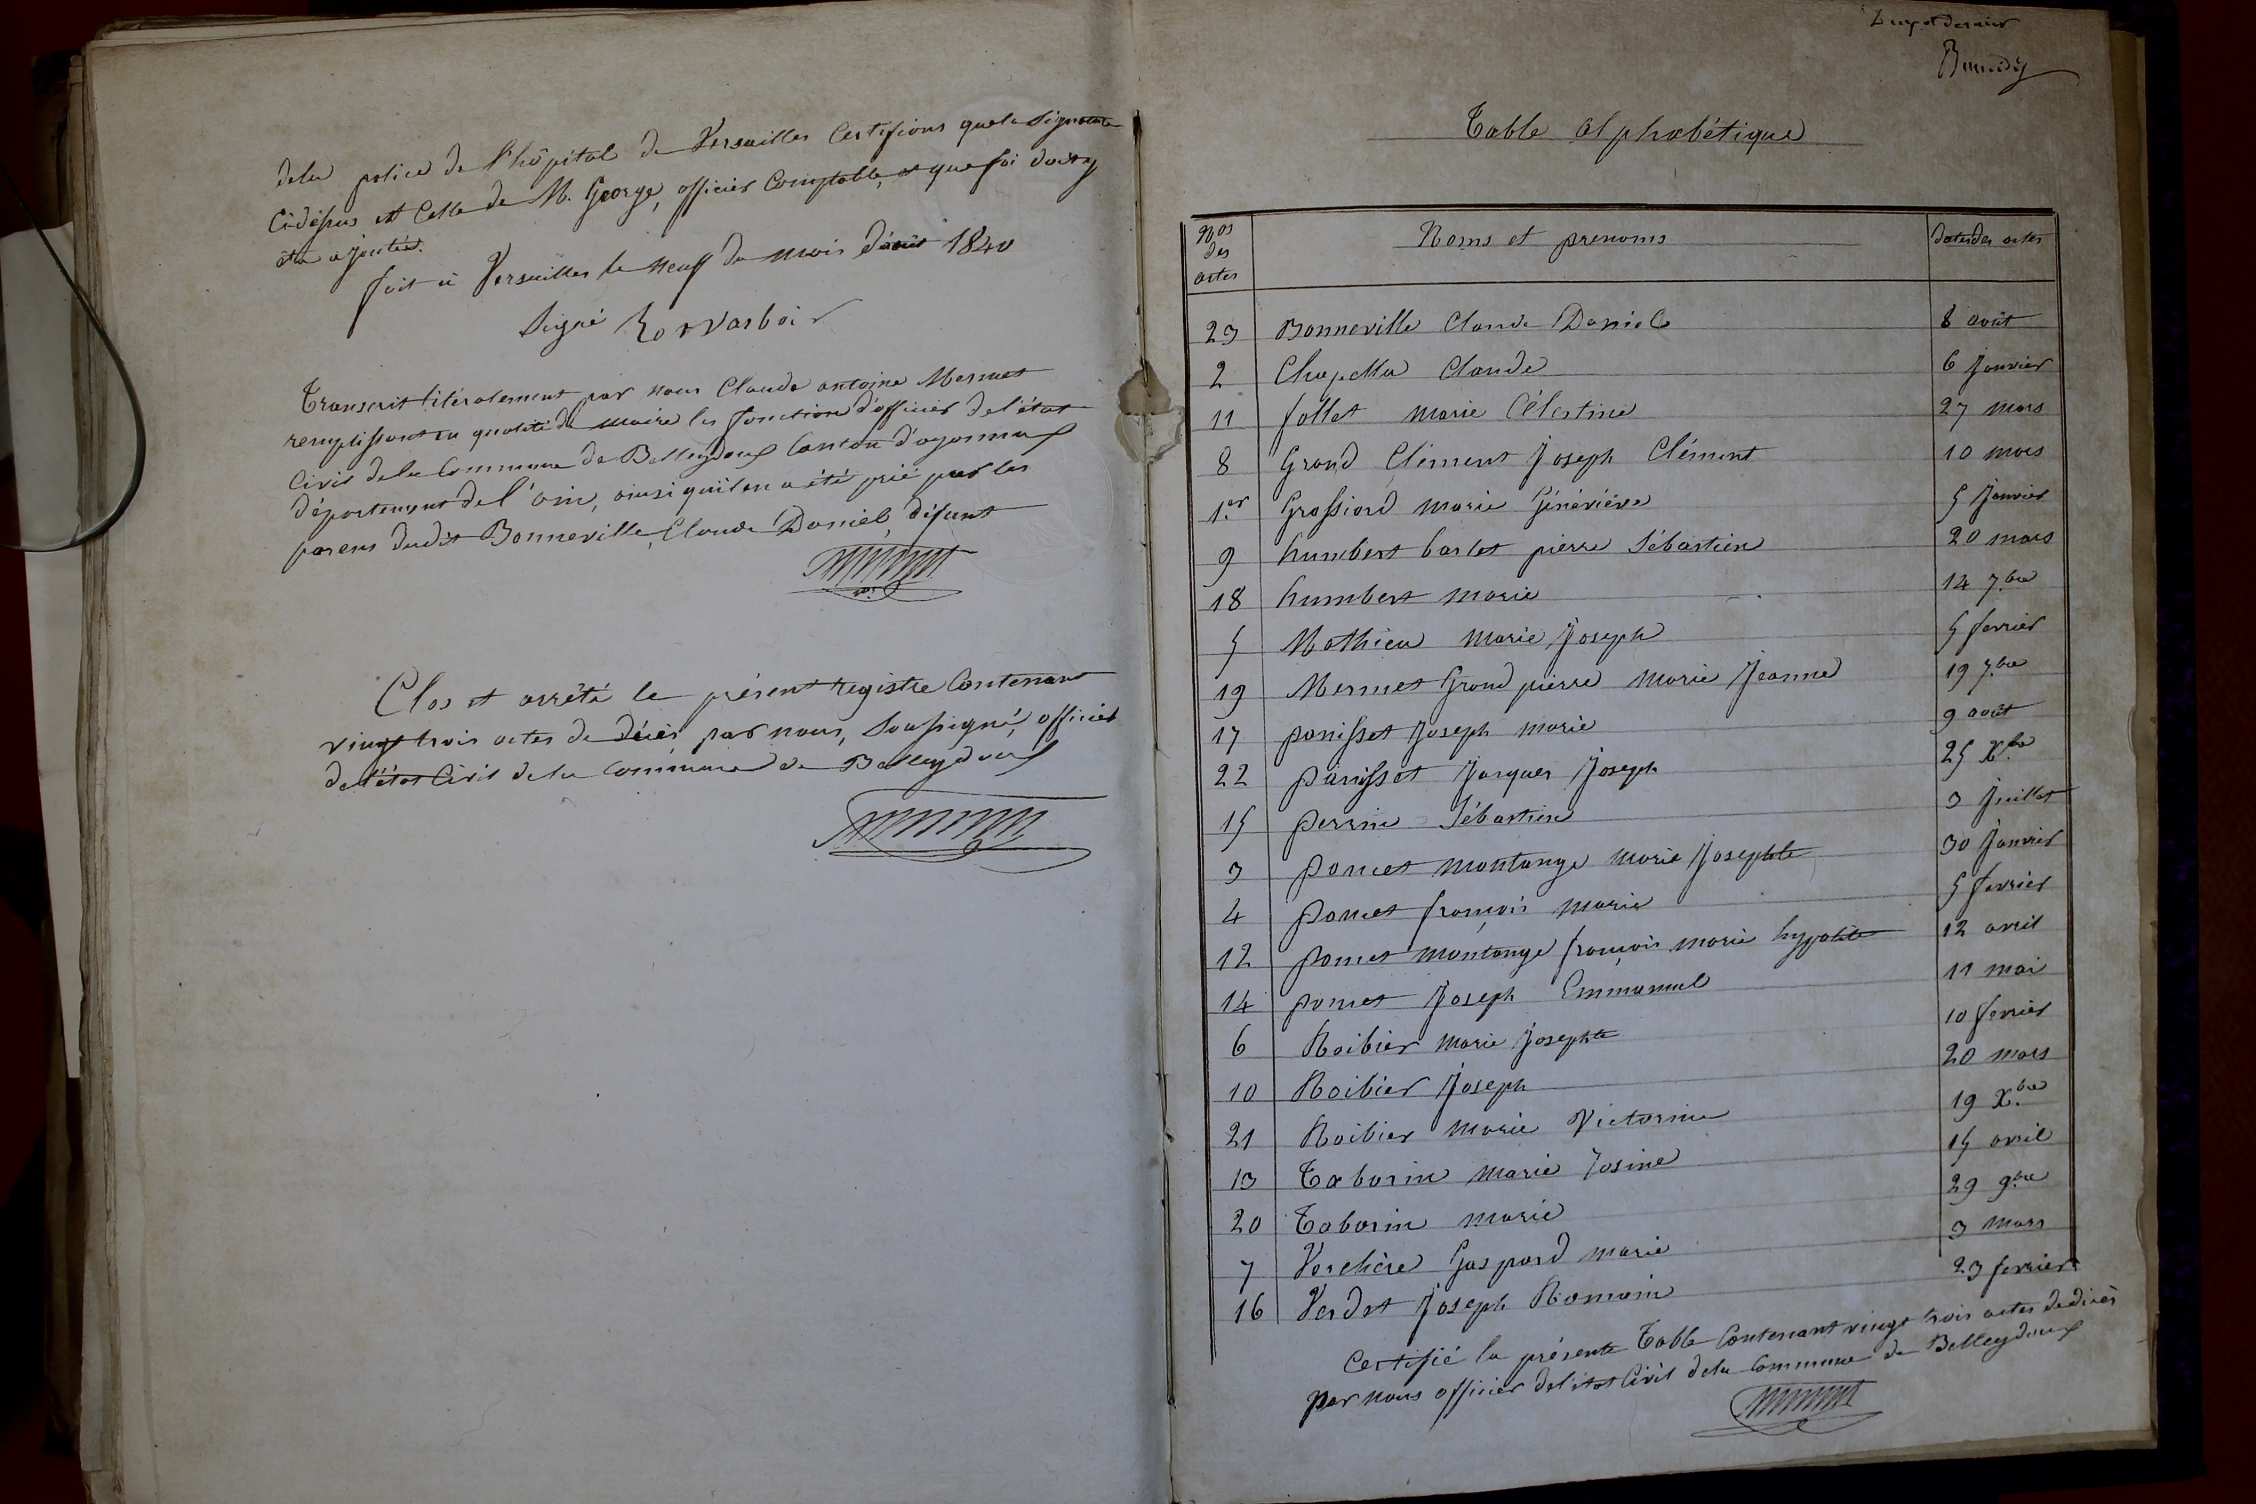 dela police de l'hôpital de Versailles Certifions que la Signature
Cidessus est Celle de M. George, officier Comptable, et que foi doit y
être ajoutée.
fait à Versailles le neuf du mois d'août 1840
Signé
Transcrit litéralement par nous Claude antoine Mermet
remplissant en qualité de maire les fonctions d'officier de l'état
Civil dela Commune de Belleydoux Canton d'oyonnax
département de l'ain, ainsi qu'il en a été prié par les
parens dudit Bonneville, Claude Daniel, défunt
Mermet
Clos et arrêté le présent registre Contenant
vingt trois actes de décès, par nous, Soussigné, officier
de l'état Civil dela Commune de Belleydoux
Mermet
et dernier
Table alphabétique
Nos des actes Noms et prenoms Dates des actes
23 Bonneville Claude Daniel 8 août
2 Chapella Claude 6 Janvier
11 follet marie Célestine 27 mars
8 Grand Clément Joseph Clément 10 mars
1.er Grassiord marie Généviève 5 Janvier
9 humbert barlet pierre Sébastien 20 mars
18 humbert marie 14 7.bre
5 Mathieu Marie Joseph 5 fevrier
19 Mermet Grand pierre Marie Jeanne 19 7.bre
17 panisset Joseph marie 9 août
22 panisset Jacques Joseph 25 X.bre
15 perrin Sébastien 3 Juillet
3 poncet montange marie Josephte 30 Janvier
4 poncet françois marie 5 fevrier
12 poncet montange françois marie hypolite 12 avril
14 poncet Joseph Emmanuel 11 mai
6 Roibier marie Josephte 10 fevrier
10 Roibier Joseph 20 mars
21 Roibier marie Victorine 19 X.bre
13 Taborin marie Josine 15 avril
20 Taborin marie 29 9.bre
7 Verchère Gaspard marie 3 mars
16 Verdet Joseph Romain 23 fevrier
Certifié la présente Table Contenant vingt trois actes de dicès
par nous officier del'état Civil dela Commune de Belleydoux
Mermet